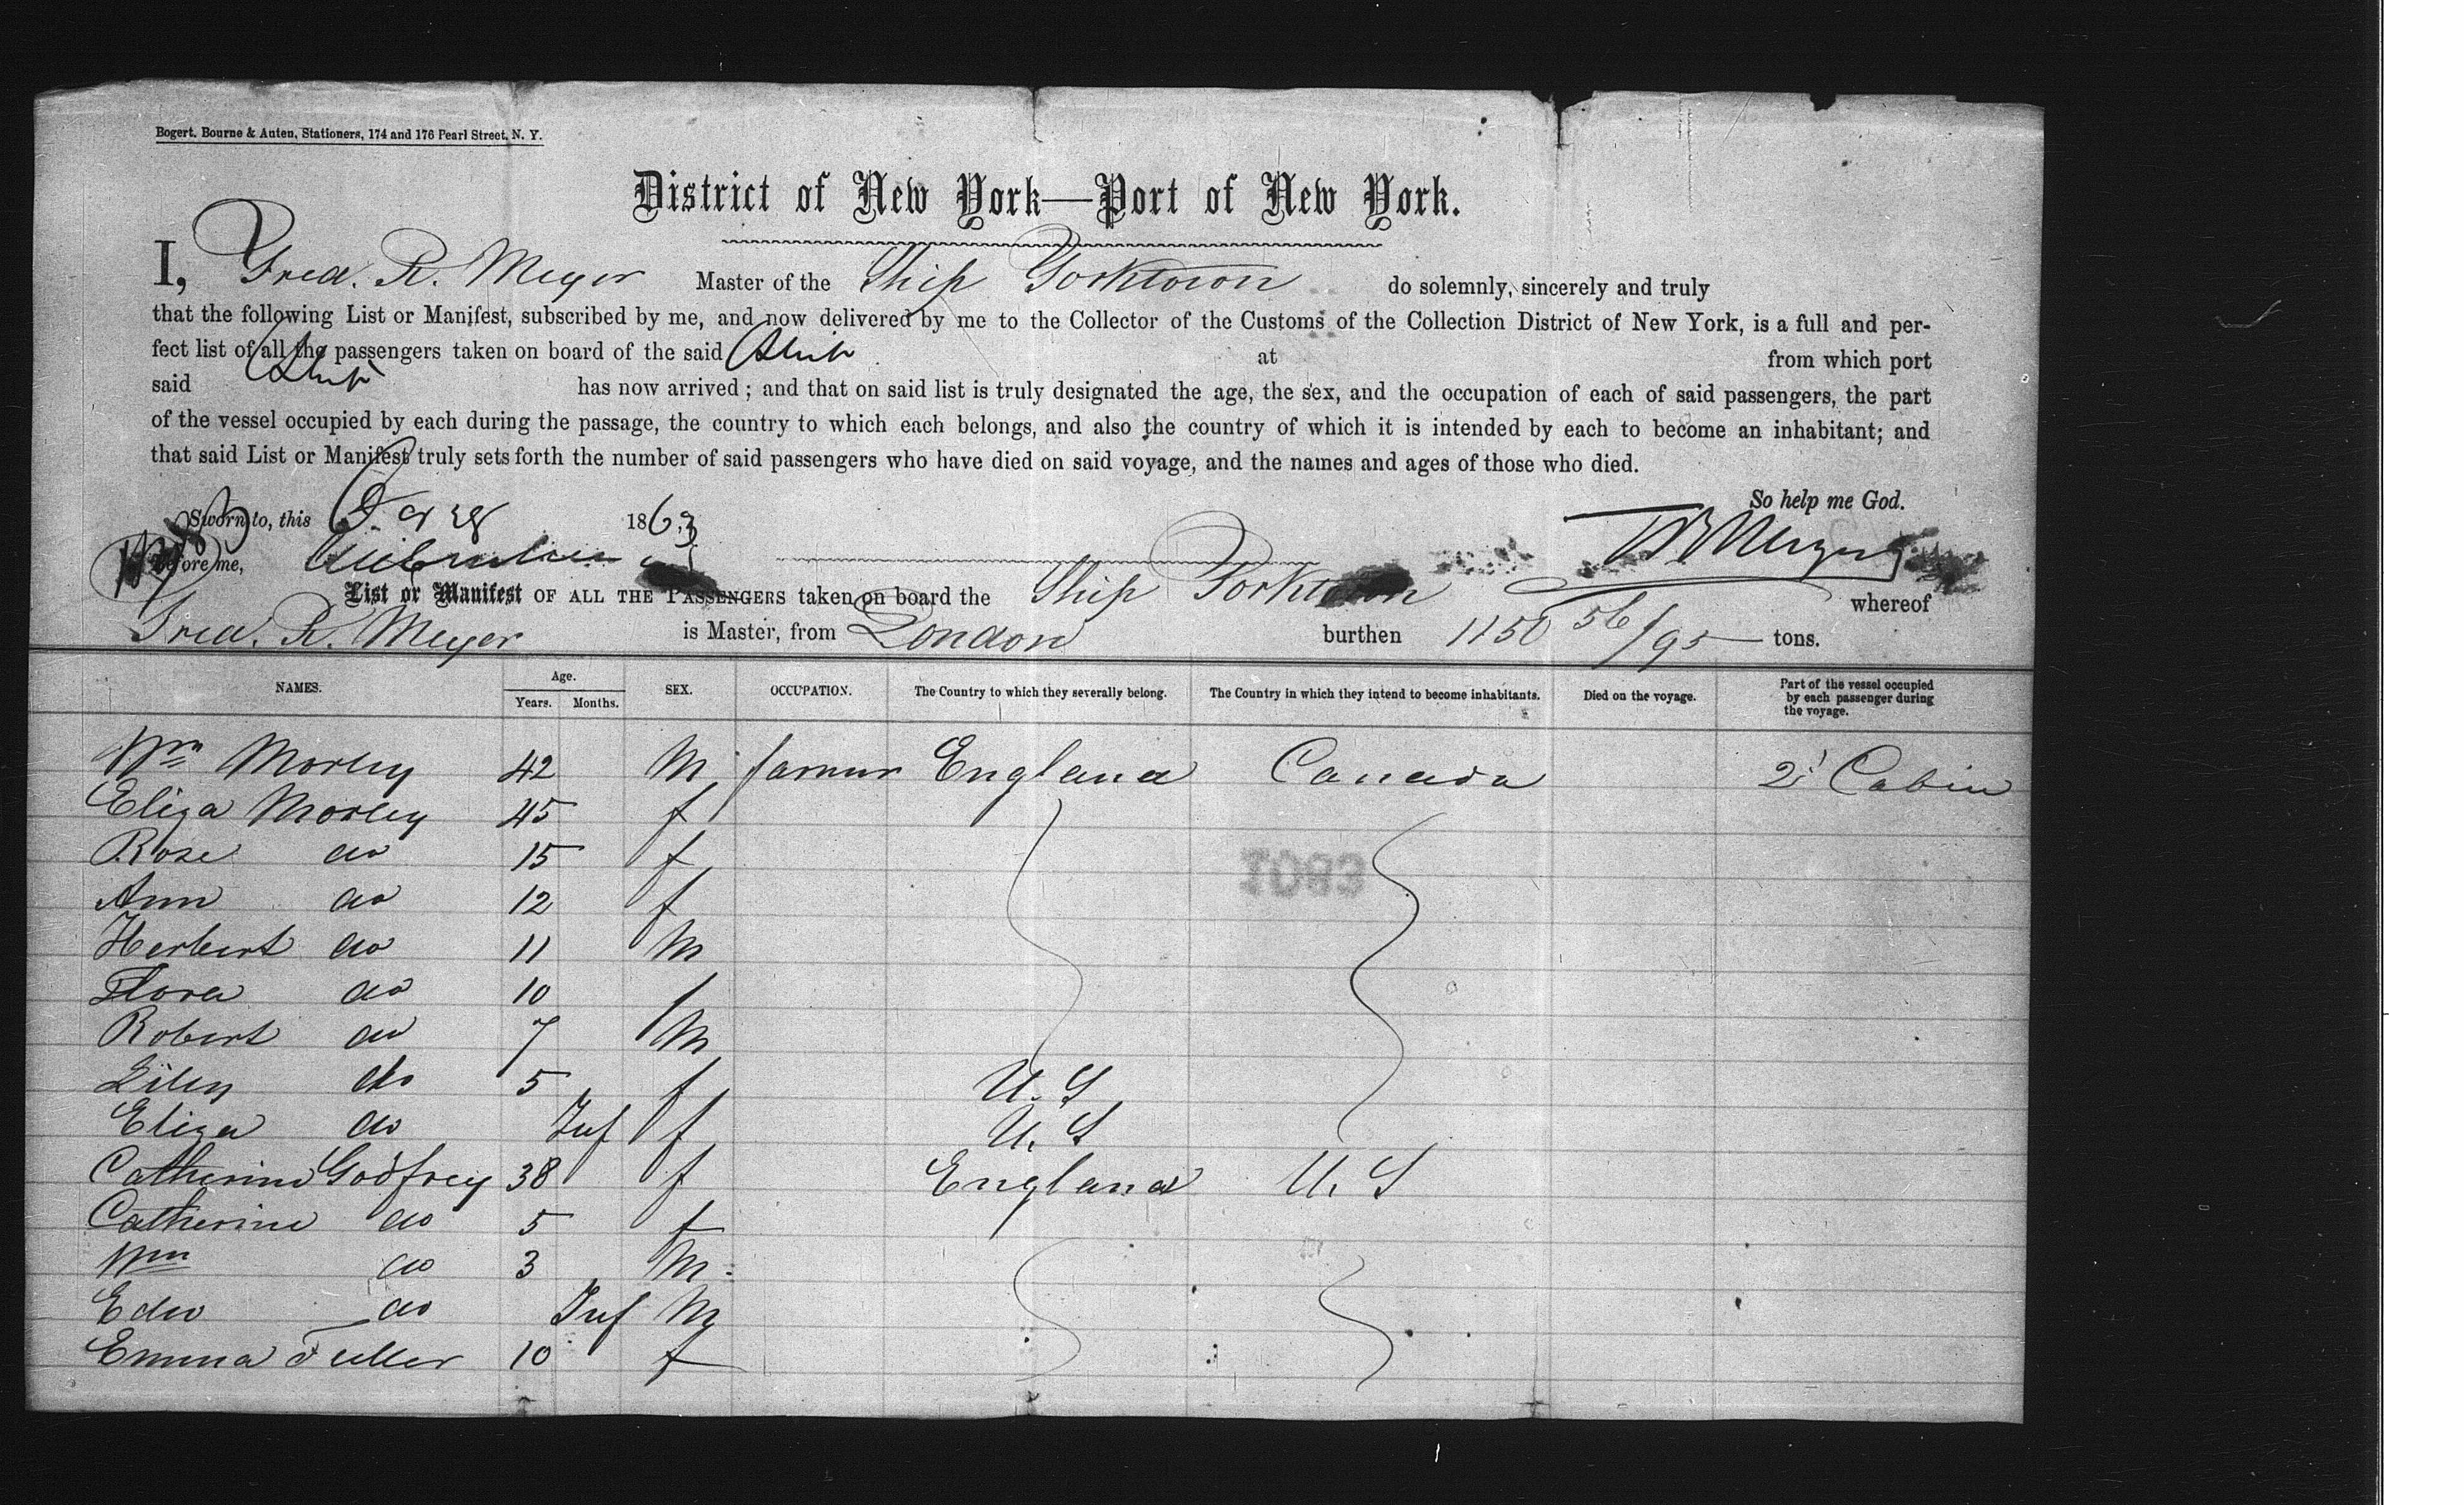 Bogert, Bourne & Auten, Stationers, 174 and 176 Pearl Street, N. Y.
District of New York—Port of New York.
I, Fred. R. Meyer Master of the Ship Yorktown do solemnly, sincerely and truly
that the following List or Manifest, subscribed by me, and now delivered by me to the Collector of the Customs of the Collection District of New York, is a full and per-
fect list of all the passengers taken on board of the said Ship at from which port
said Ship has now arrived; and that on said list is truly designated the age, the sex, and the occupation of each of said passengers, the part
of the vessel occupied by each during the passage, the country to which each belongs, and also the country of which it is intended by each to become an inhabitant; and
that said List or Manifest truly sets forth the number of said passengers who have died on said voyage, and the names and ages of those who died.
So help me God.
Sworn to, this 1863
Before me,
List or Manifest OF ALL THE PASSENGERS taken on board the Ship Yorktown whereof
Fred. R. Meyer is Master, from London burthen 1150 56/95 tons.
NAMES. Age. Years. Months. SEX. OCCUPATION. The Country to which they severally belong. The Country in which they intend to become inhabitants. Died on the voyage. Part of the vessel occupied by each passenger during the voyage.
Wm Morley 42 M farmer England Canada 2d Cabin
Eliza Morley 45 f
Rose do 15 f
Ann do 12 f
Herbert do 11 M
Flora do 10
Robert do 7 M
Liley do 5 f U.S
Eliza do Inf f U.S
Catherine Godfrey 38 f England U.S
Catherine do 5 f
Wm do 3 M
Edw do Inf M
Emma Fuller 10 f